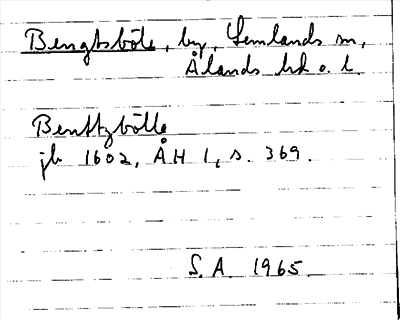 Bengtsböle, by, Lemlands sn,
Ålands hd o. l.
Benttzbölle
jb 1602, ÅH 1, s. 369.
S.A. 1965.